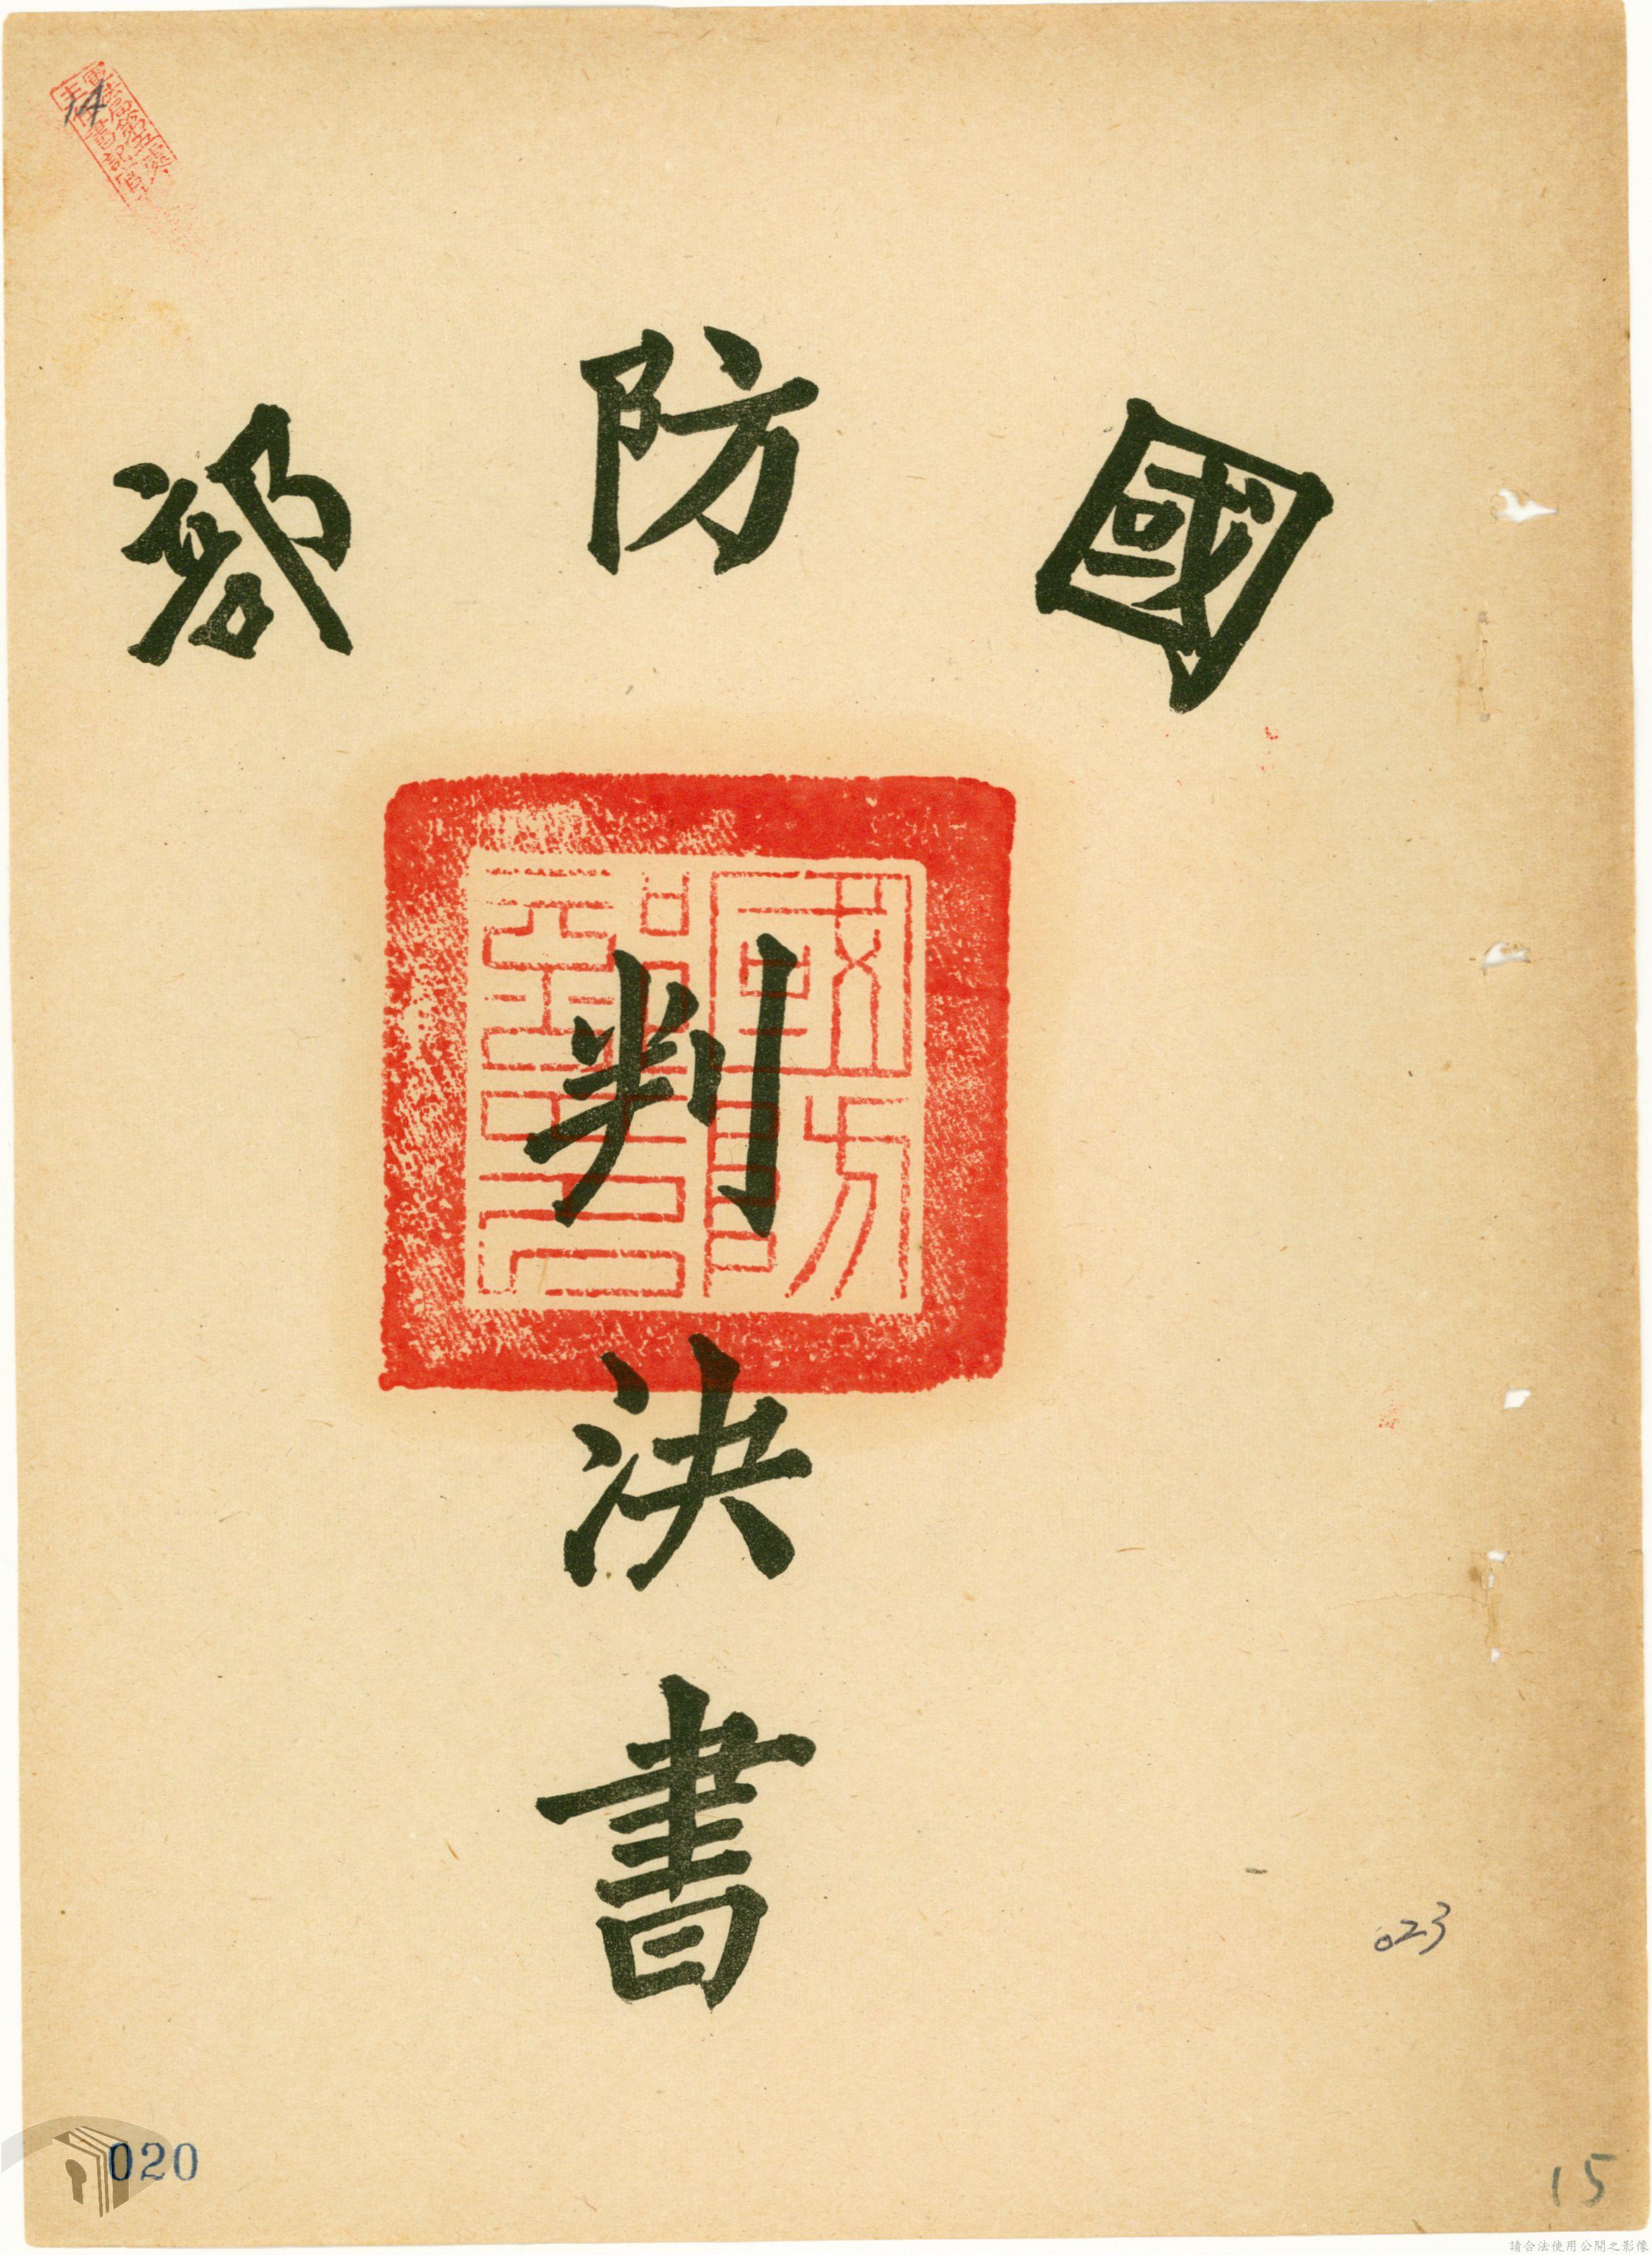 14
國防部
國防部印
判決書
023
020
15
請合法使用公開之影像